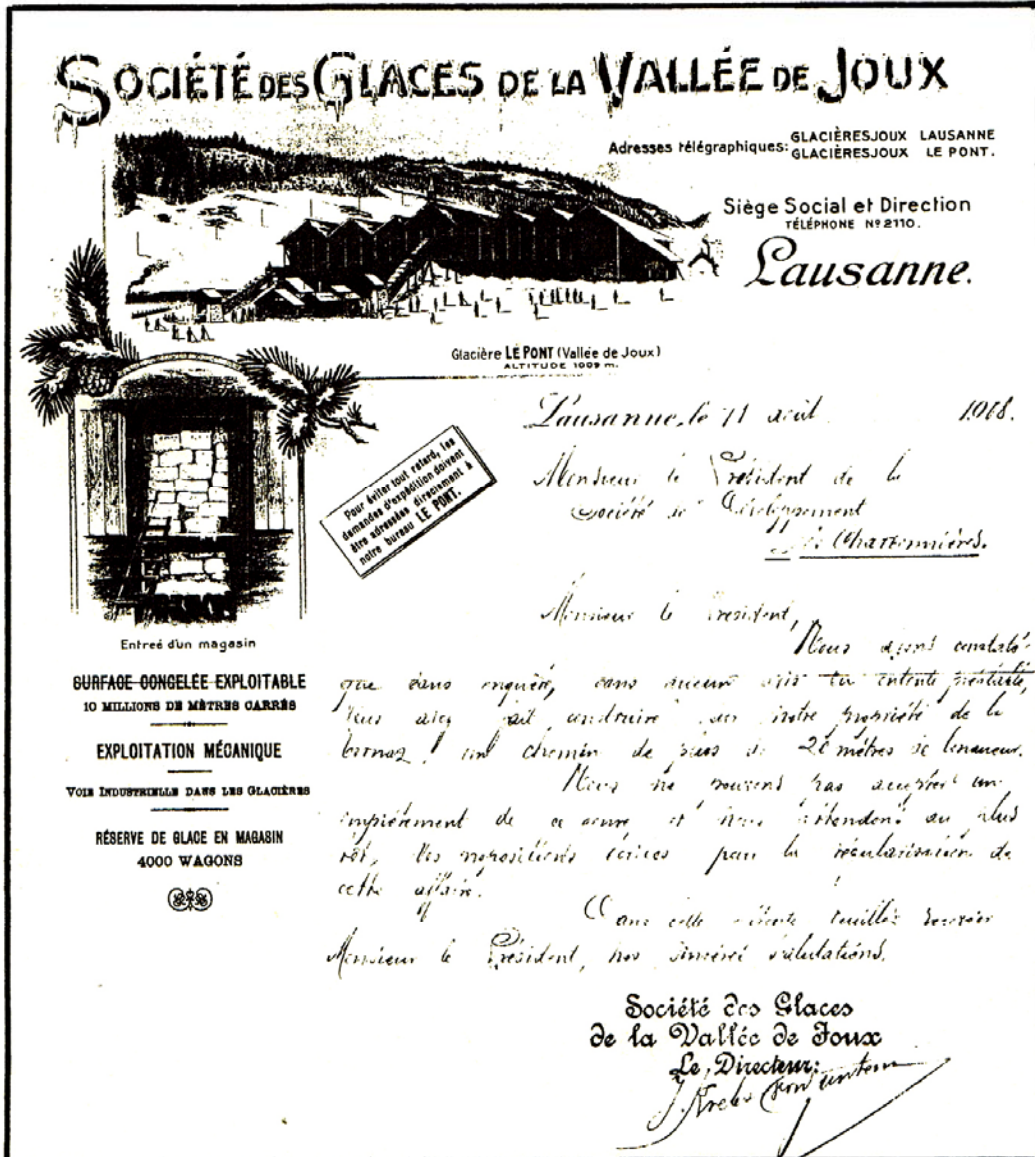 SOCIÉTÉ DES GLACES DE LA VALLÉE DE JOUX
Adresses télégraphiques: GLACIÈRESJOUX LAUSANNE
GLACIÈRESJOUX LE PONT.
Siège Social et Direction
TÉLÉPHONE Nº 2110.
Lausanne.
Glacière LE PONT (Vallée de Joux)
ALTITUDE 1009 m.
Lausanne, le 11 août 1908.
Pour éviter tout retard, les
demandes d'expédition doivent
être adressées directement à
notre bureau LE PONT.
Monsieur le Président de la
Société de Développement
Charbonnières.
Entreé d'un magasin
SURFACE CONGELÉE EXPLOITABLE
10 MILLIONS DE MÈTRES CARRÉS
EXPLOITATION MÉCANIQUE
VOIE INDUSTRIELLE DANS LES GLACIÈRES
RÉSERVE DE GLACE EN MAGASIN
4000 WAGONS
Monsieur le Président,
Nous avons constaté
que sans enquête, sans aucun avis ou entente préalable,
vous avez fait construire sur notre propriété de la
un chemin de plus de 20 mètres de longueur.
Nous ne pouvons pas accepter un
empiètement de ce genre et nous attendons au plus
tôt, vos propositions écrites pour la régularisation de
cette affaire.
Dans cette attente veuillez recevoir
Monsieur le Président, nos sincères salutations.
Société des Glaces
de la Vallée de Joux
Le Directeur:
J. Krebs